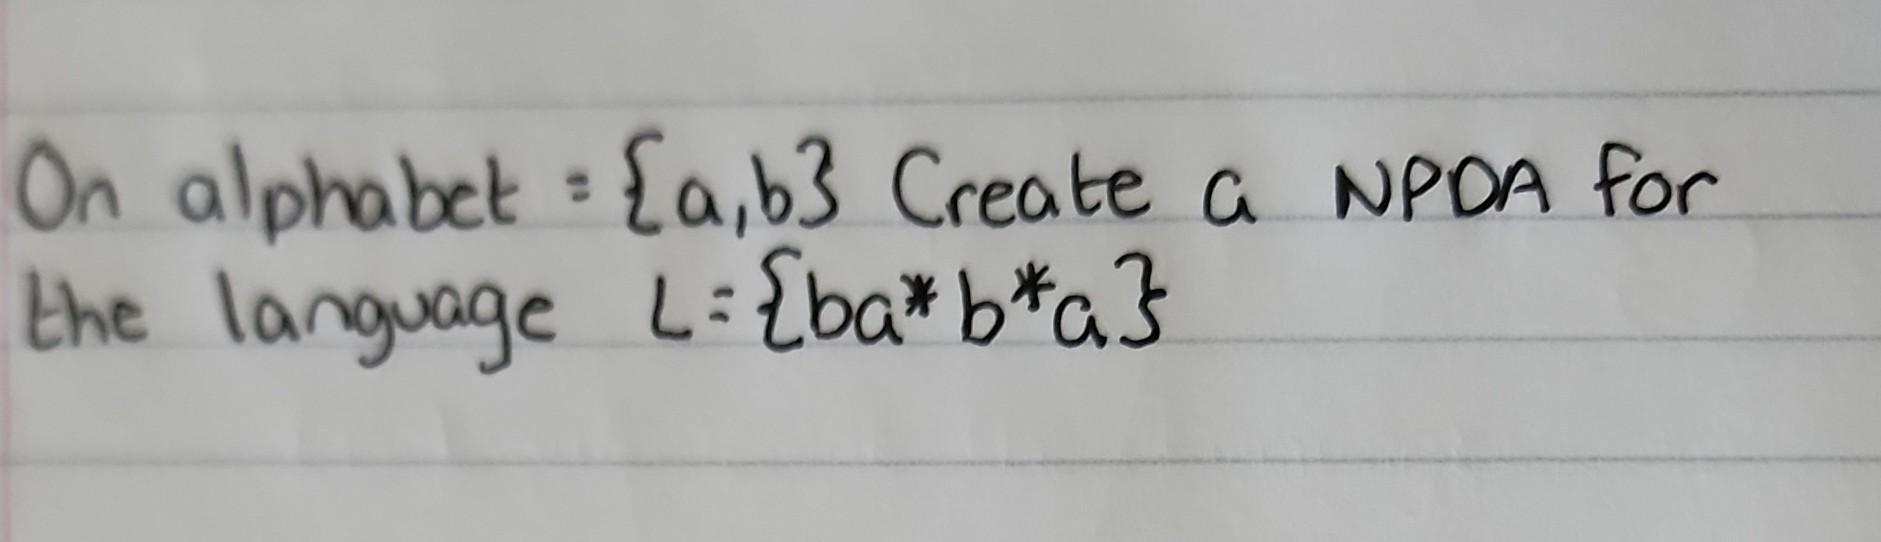 On alphabet = {a,b} Create a NPDA for
the language L={ba*b*a}